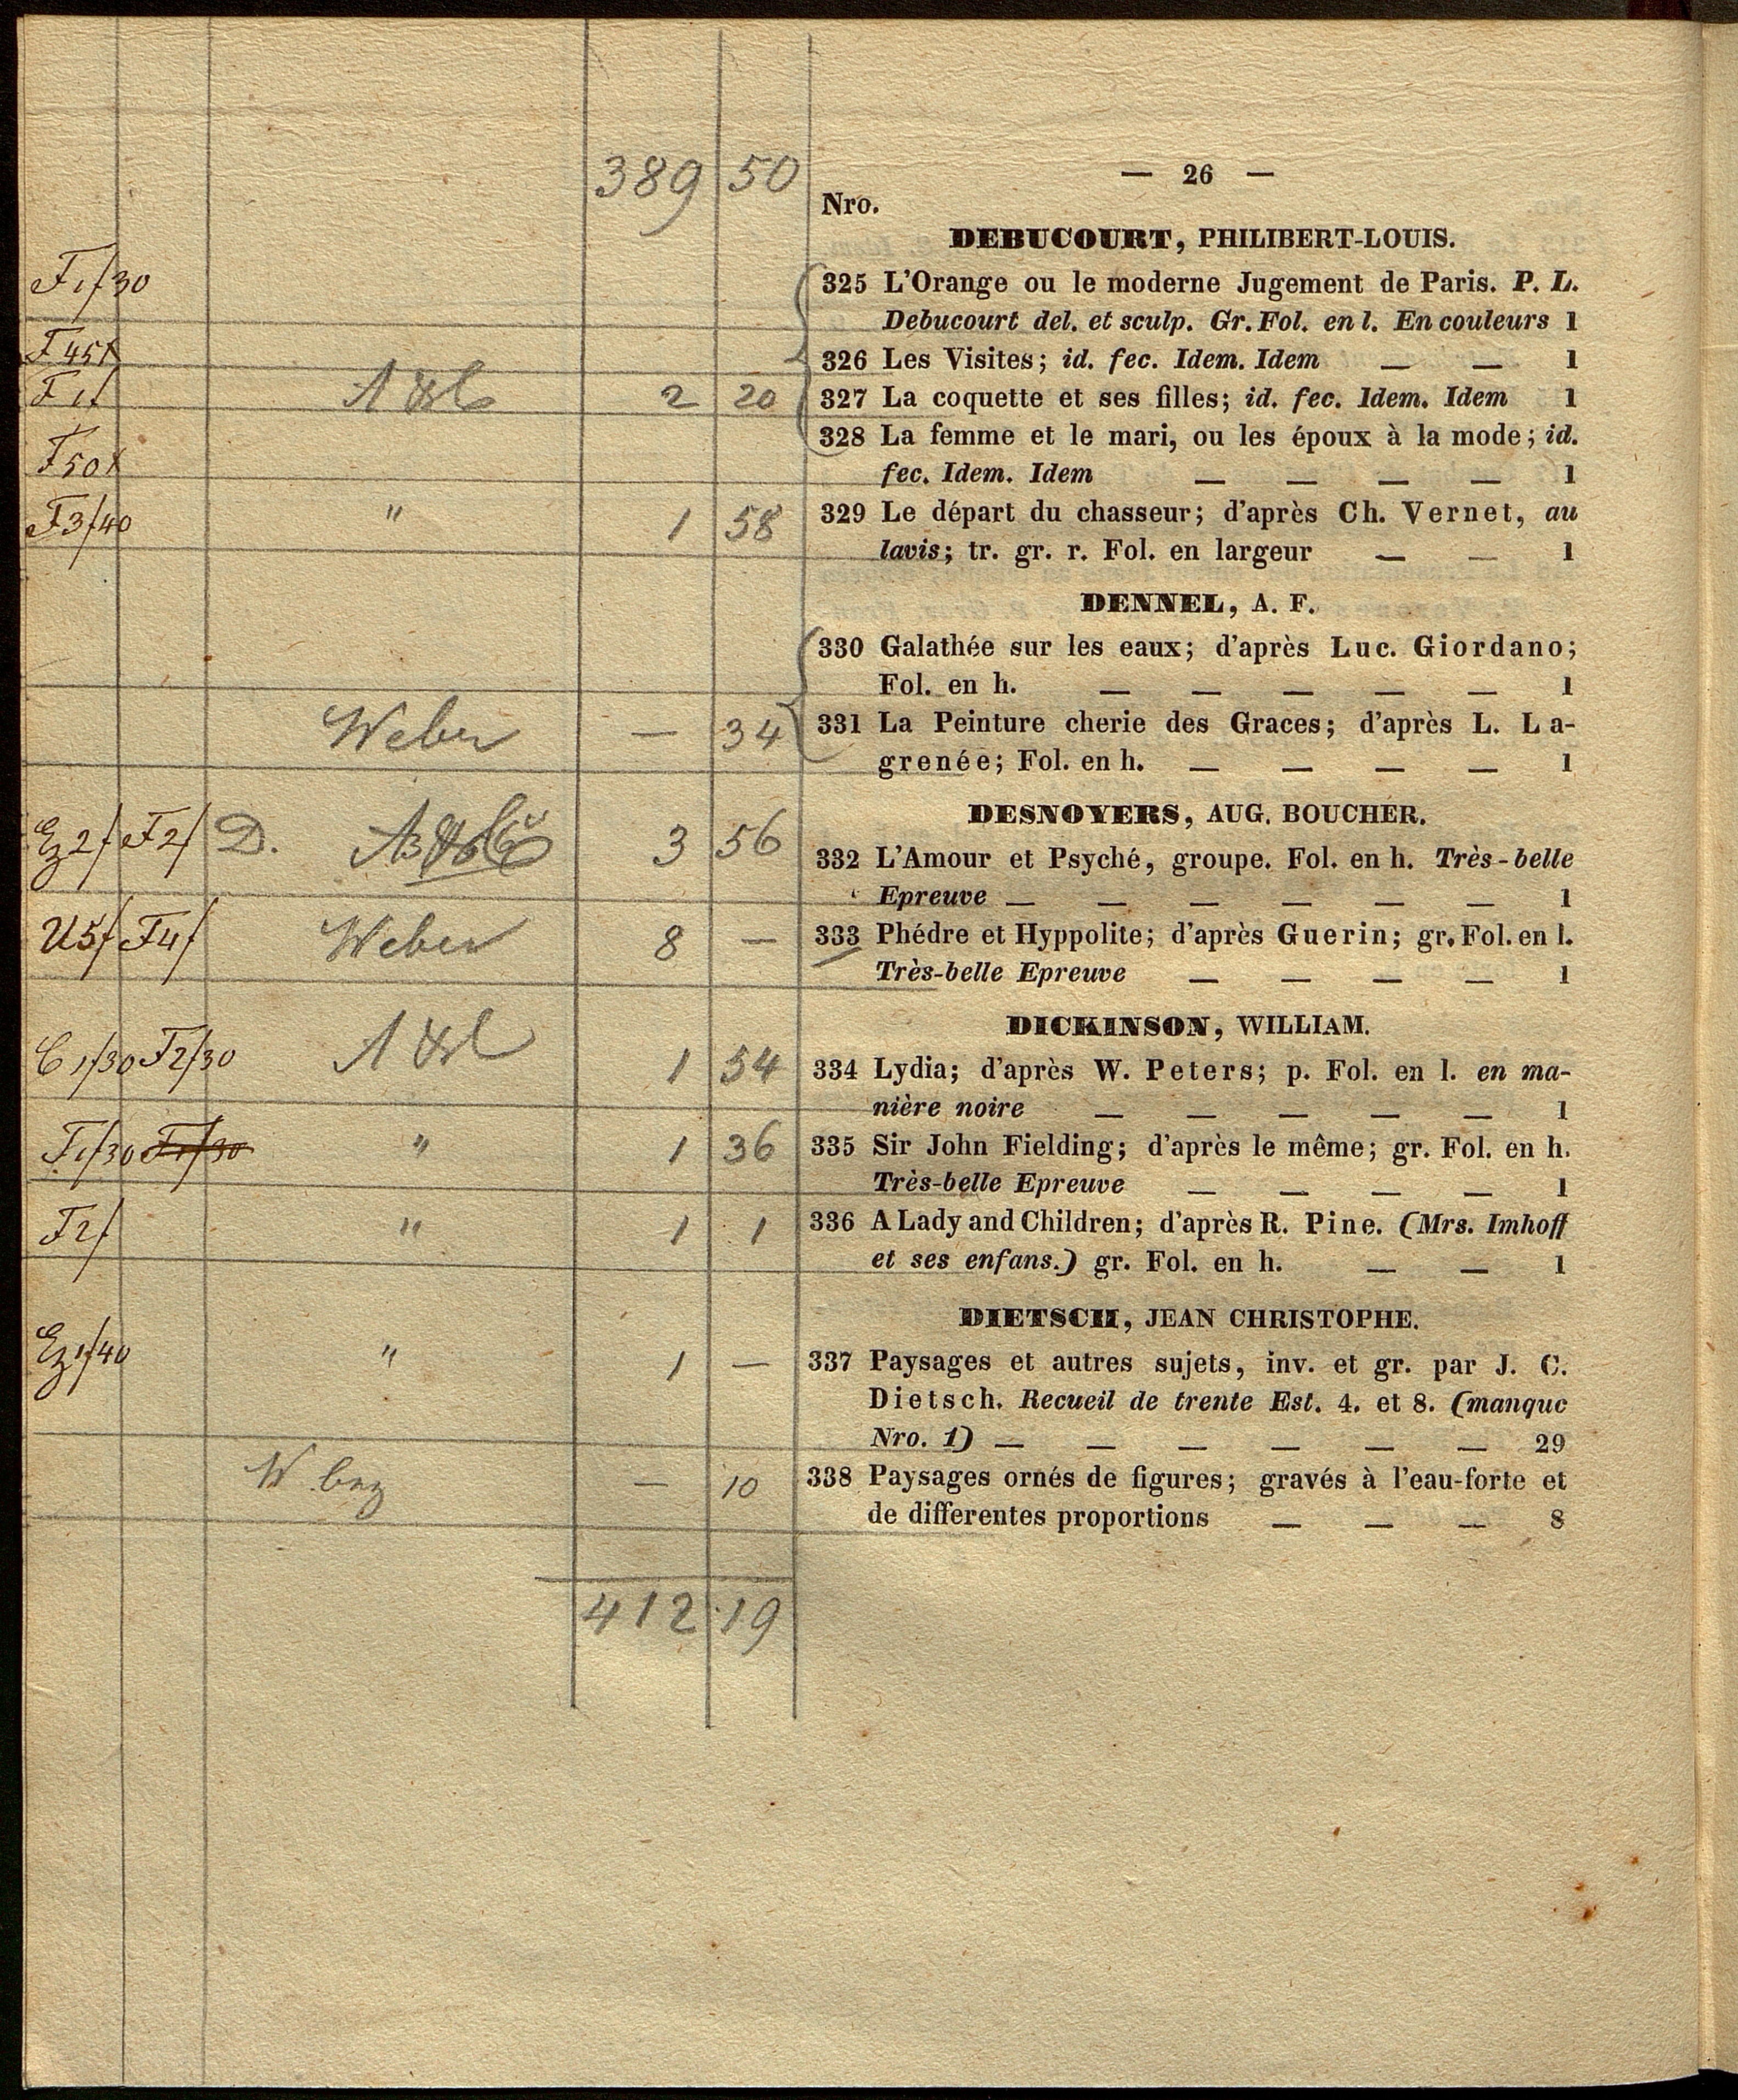 389 50
— 26 —
Nro.
DEBUCOURT, PHILIBERT-LOUIS.
F1f30
325 L'Orange ou le moderne Jugement de Paris. P. L.
Debucourt del. et sculp. Gr. Fol. en l. En couleurs 1
F 45x
326 Les Visites; id. fec. Idem. Idem — — 1
F 1f
2 20
327 La coquette et ses filles; id. fec. Idem. Idem 1
F50x
328 La femme et le mari, ou les époux à la mode; id.
fec. Idem. Idem — — — — 1
F3f40 " 1 58
329 Le départ du chasseur; d'après Ch. Vernet, au
lavis; tr. gr. r. Fol. en largeur — — 1
DENNEL, A. F.
330 Galathée sur les eaux; d'après Luc. Giordano;
Fol. en h. — — — — — 1
Weber — 34
331 La Peinture cherie des Graces; d'après L. La-
grenée; Fol. en h. — — — — 1
DESNOYERS, AUG. BOUCHER.
Ez2f F2f D. 3 56
332 L'Amour et Psyché, groupe. Fol. en h. Très-belle
Epreuve — — — — — — 1
U5f F4f Weber 8 —
333 Phédre et Hyppolite; d'après Guerin; gr. Fol. en l.
Très-belle Epreuve — — — — 1
DICKINSON, WILLIAM.
C1f30 F2f30 1 54
334 Lydia; d'après W. Peters; p. Fol. en l. en ma-
nière noire — — — — — 1
F1f30 F1f30 " 1 36
335 Sir John Fielding; d'après le même; gr. Fol. en h.
Très-belle Epreuve — — — — 1
F2f " 1 1
336 A Lady and Children; d'après R. Pine. (Mrs. Imhoff
et ses enfans.) gr. Fol. en h. — — 1
DIETSCH, JEAN CHRISTOPHE.
Ez1f40 " 1 —
337 Paysages et autres sujets, inv. et gr. par J. C.
Dietsch. Recueil de trente Est. 4. et 8. (manque
Nro. 1) — — — — — — 29
— 10
338 Paysages ornés de figures; gravés à l'eau-forte et
de differentes proportions — — — 8
412 19